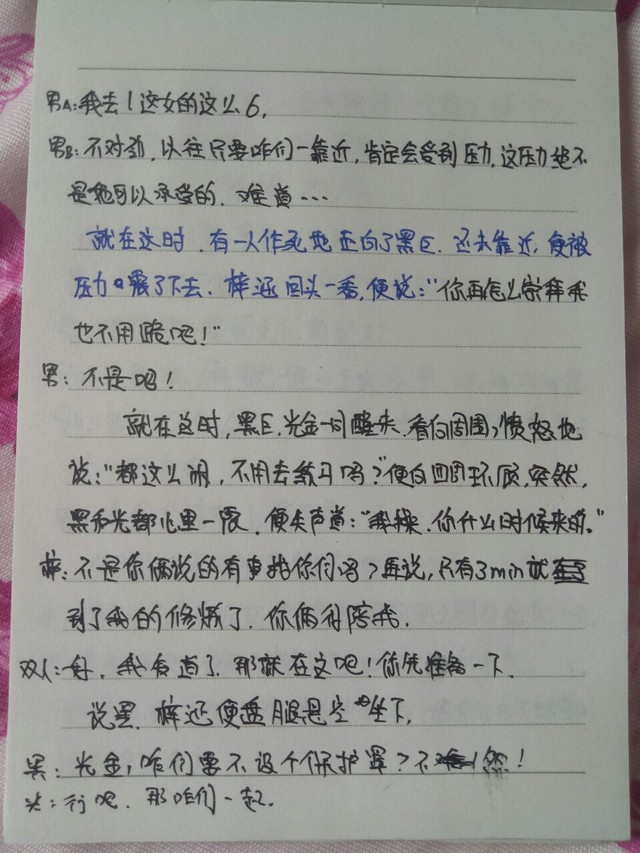 男A:我去!这女的这么6,
男B:不对劲,以往只要咱们一靠近,肯定会受到压力,这压力绝不
是她可以承受的.难道...
就在这时,有一人作死地迈向了黑巨.还未靠近,便被
压力震了下去.梓涵回头一看,便说:"你再怎么崇拜我
也不用跪吧!"
男:不是吗!
就在这时,黑巨.光金一同醒来.看向周围,愤怒地
说:"都这么闲,不用去练习吗?"便向四周环顾,突然,
黑和光都心里一震.便失声道:"我操.你什么时候来的."
梓:不是你俩说的有事找你们吗?再说,只有3min就
到了我的修炼了.你俩得陪我.
双人:好,我知道了.那就在这吧!你先准备一下.
说罢.梓涵便盘腿悬空坐下,
黑:光金,咱们要不设个保护罩?不然!
光:行吧.那咱们一起.